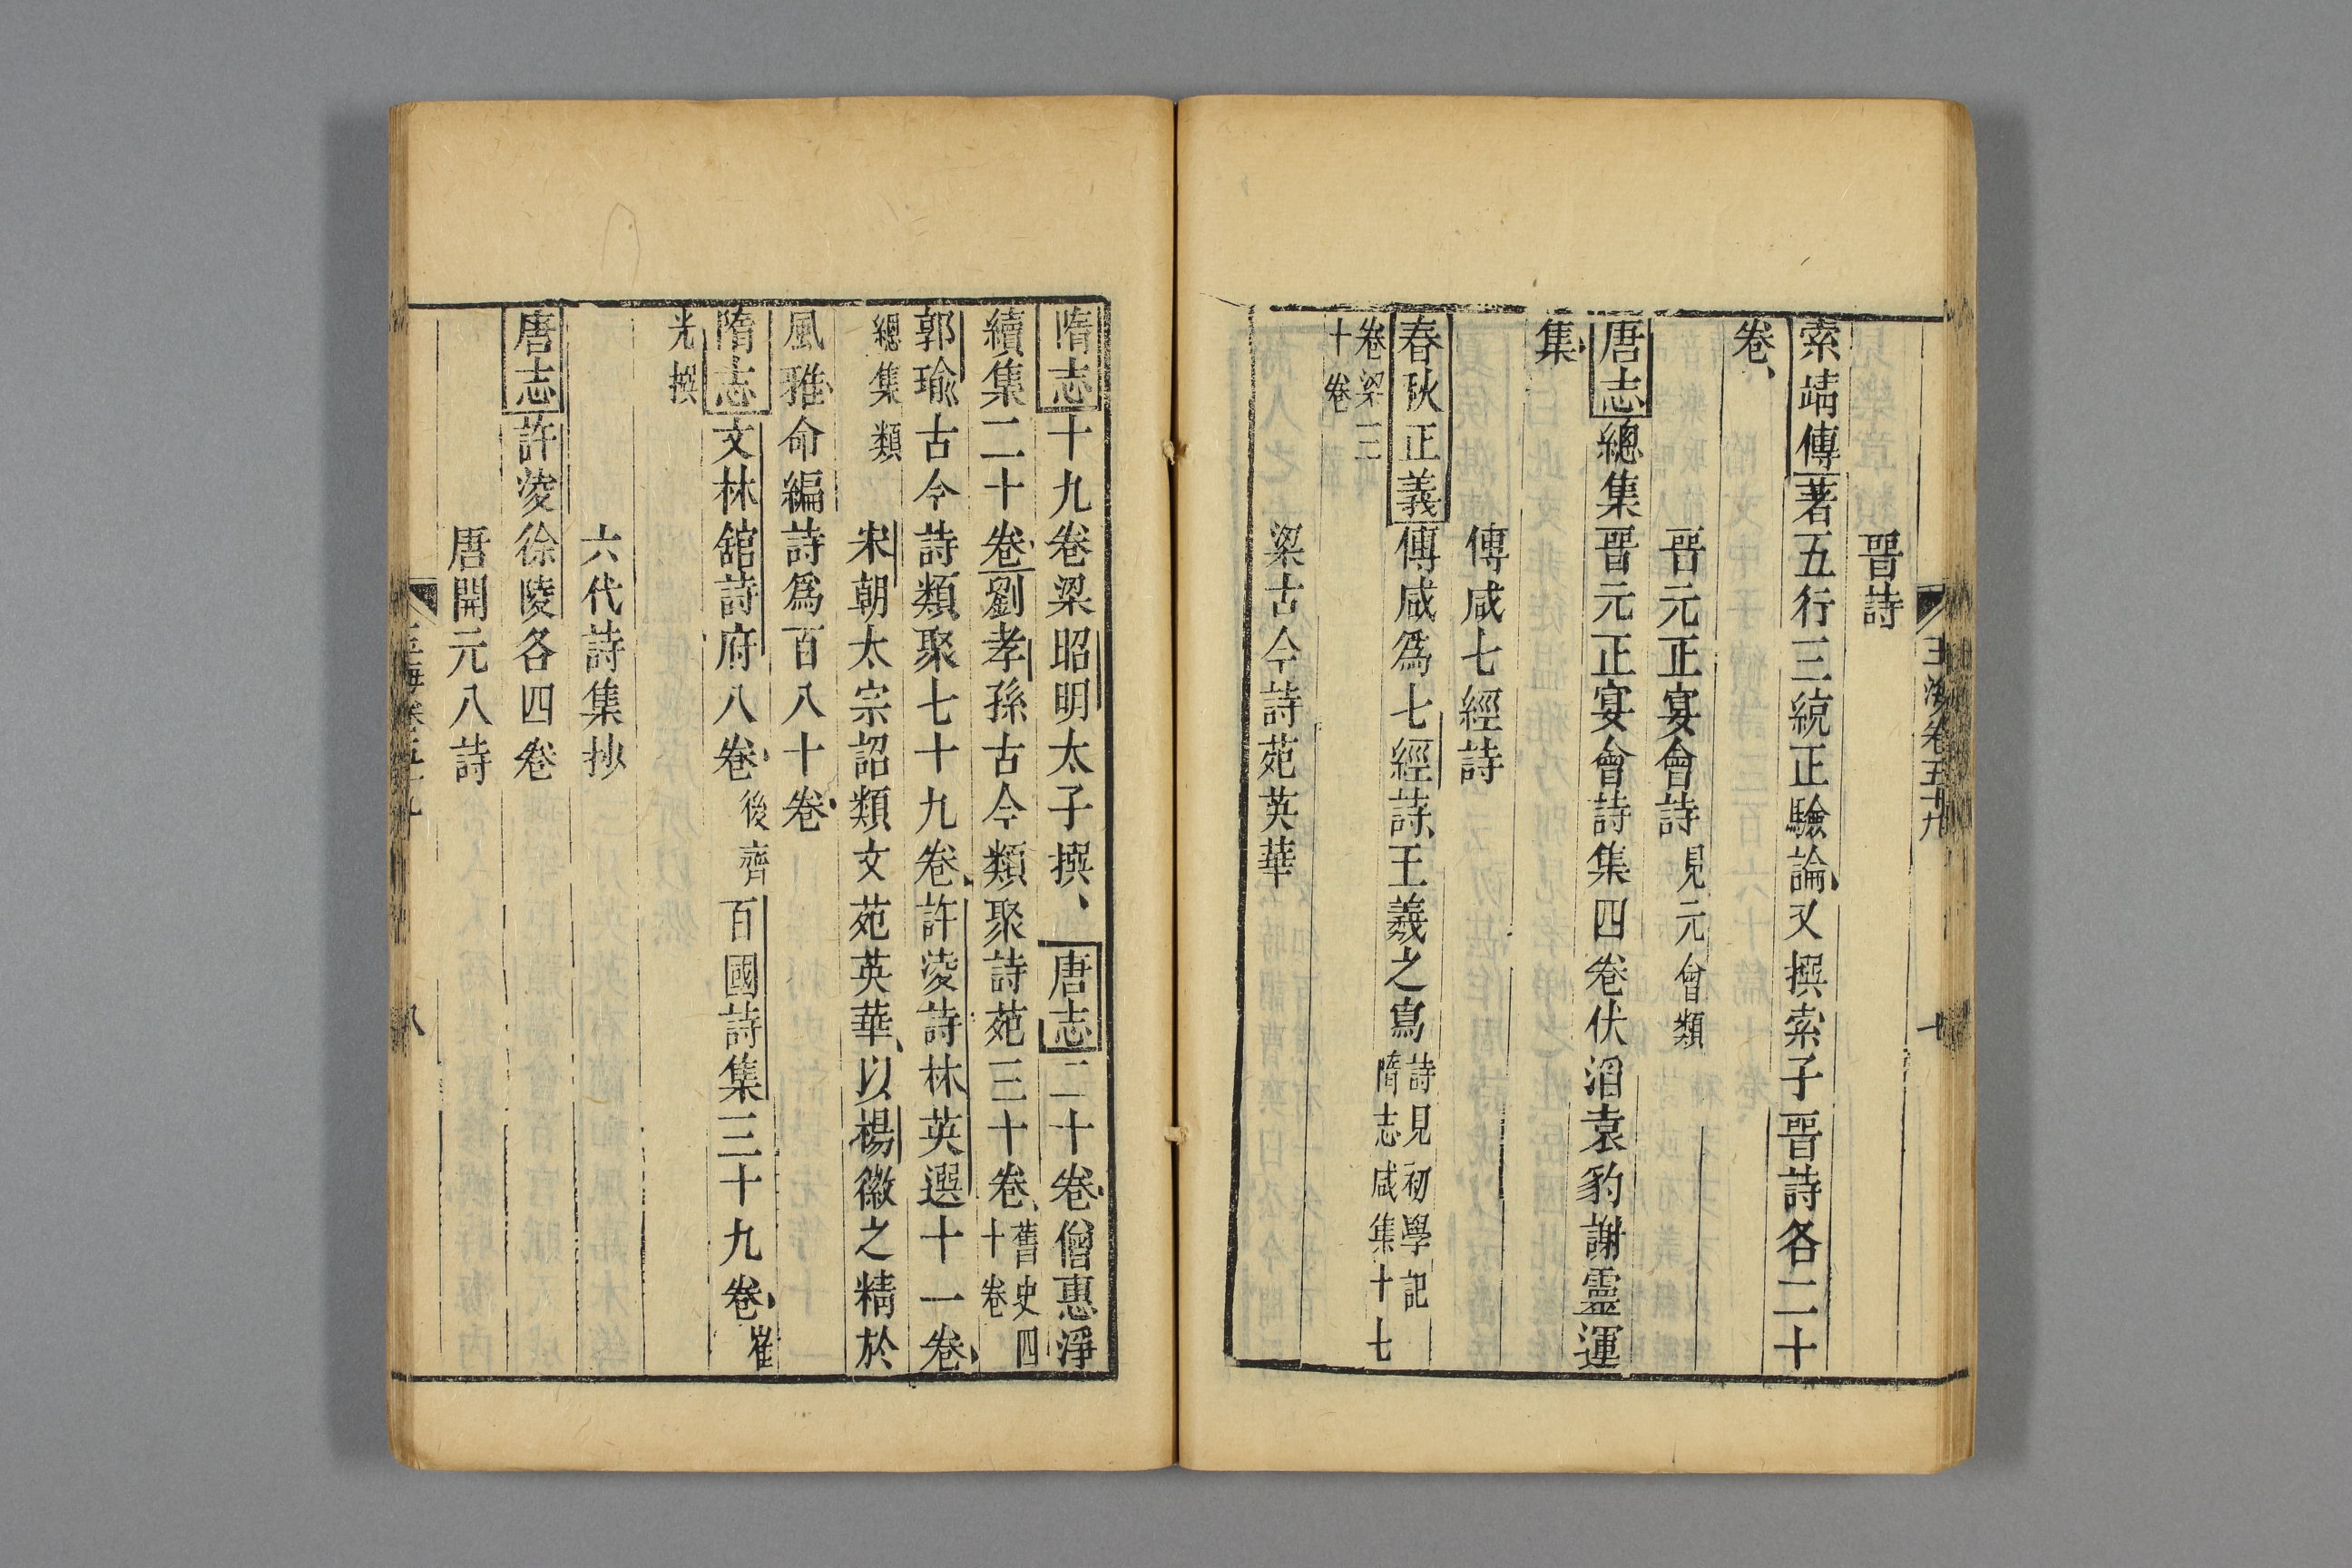 玉海卷五十九
晉詩
索靖傳著五行三統正驗論又撰索子晉詩各二十
卷
晉元正宴會詩見元會類
唐志總集晉元正宴會詩集四卷伏滔袁豹謝靈運
集
傅咸七經詩
春秋正義傅咸爲七經詩王羲之寫詩見初學記
隋志咸集十七
卷梁三
十卷
梁古今詩苑英華
隋志十九卷梁昭明太子撰唐志二十卷僧惠淨
續集二十卷劉孝孫古今類聚詩苑三十卷舊史四
十卷
郭瑜古今詩類聚七十九卷許淩詩林英選十一卷
總集類
宋朝太宗詔類文苑英華以楊徽之精於
風雅命編詩爲百八十卷
隋志文林舘詩府八卷後齊百國詩集二十九卷崔
光撰
六代詩集抄
唐志許淩徐陵各四卷
唐開元八詩
八